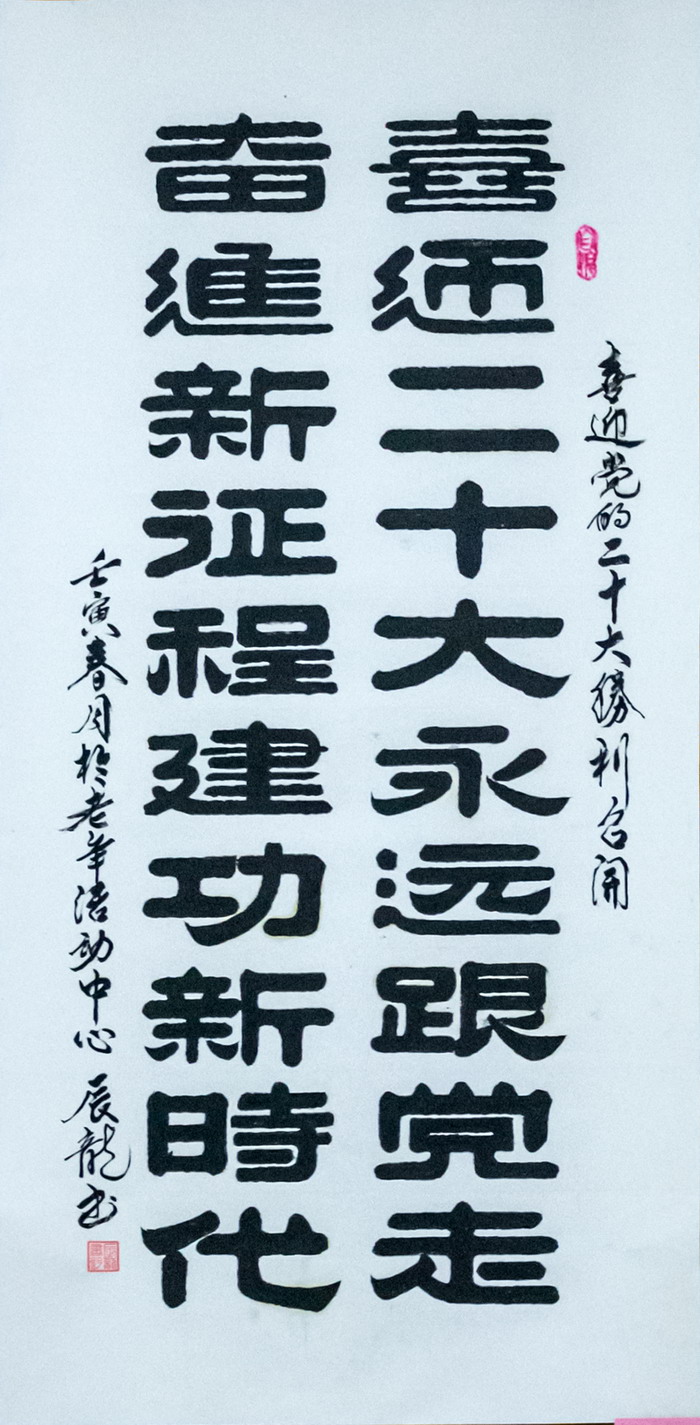 喜迎党的二十大勝利召開
喜迎二十大永远跟党走
奋進新征程建功新時代
壬寅春月於老年活动中心 辰龍书